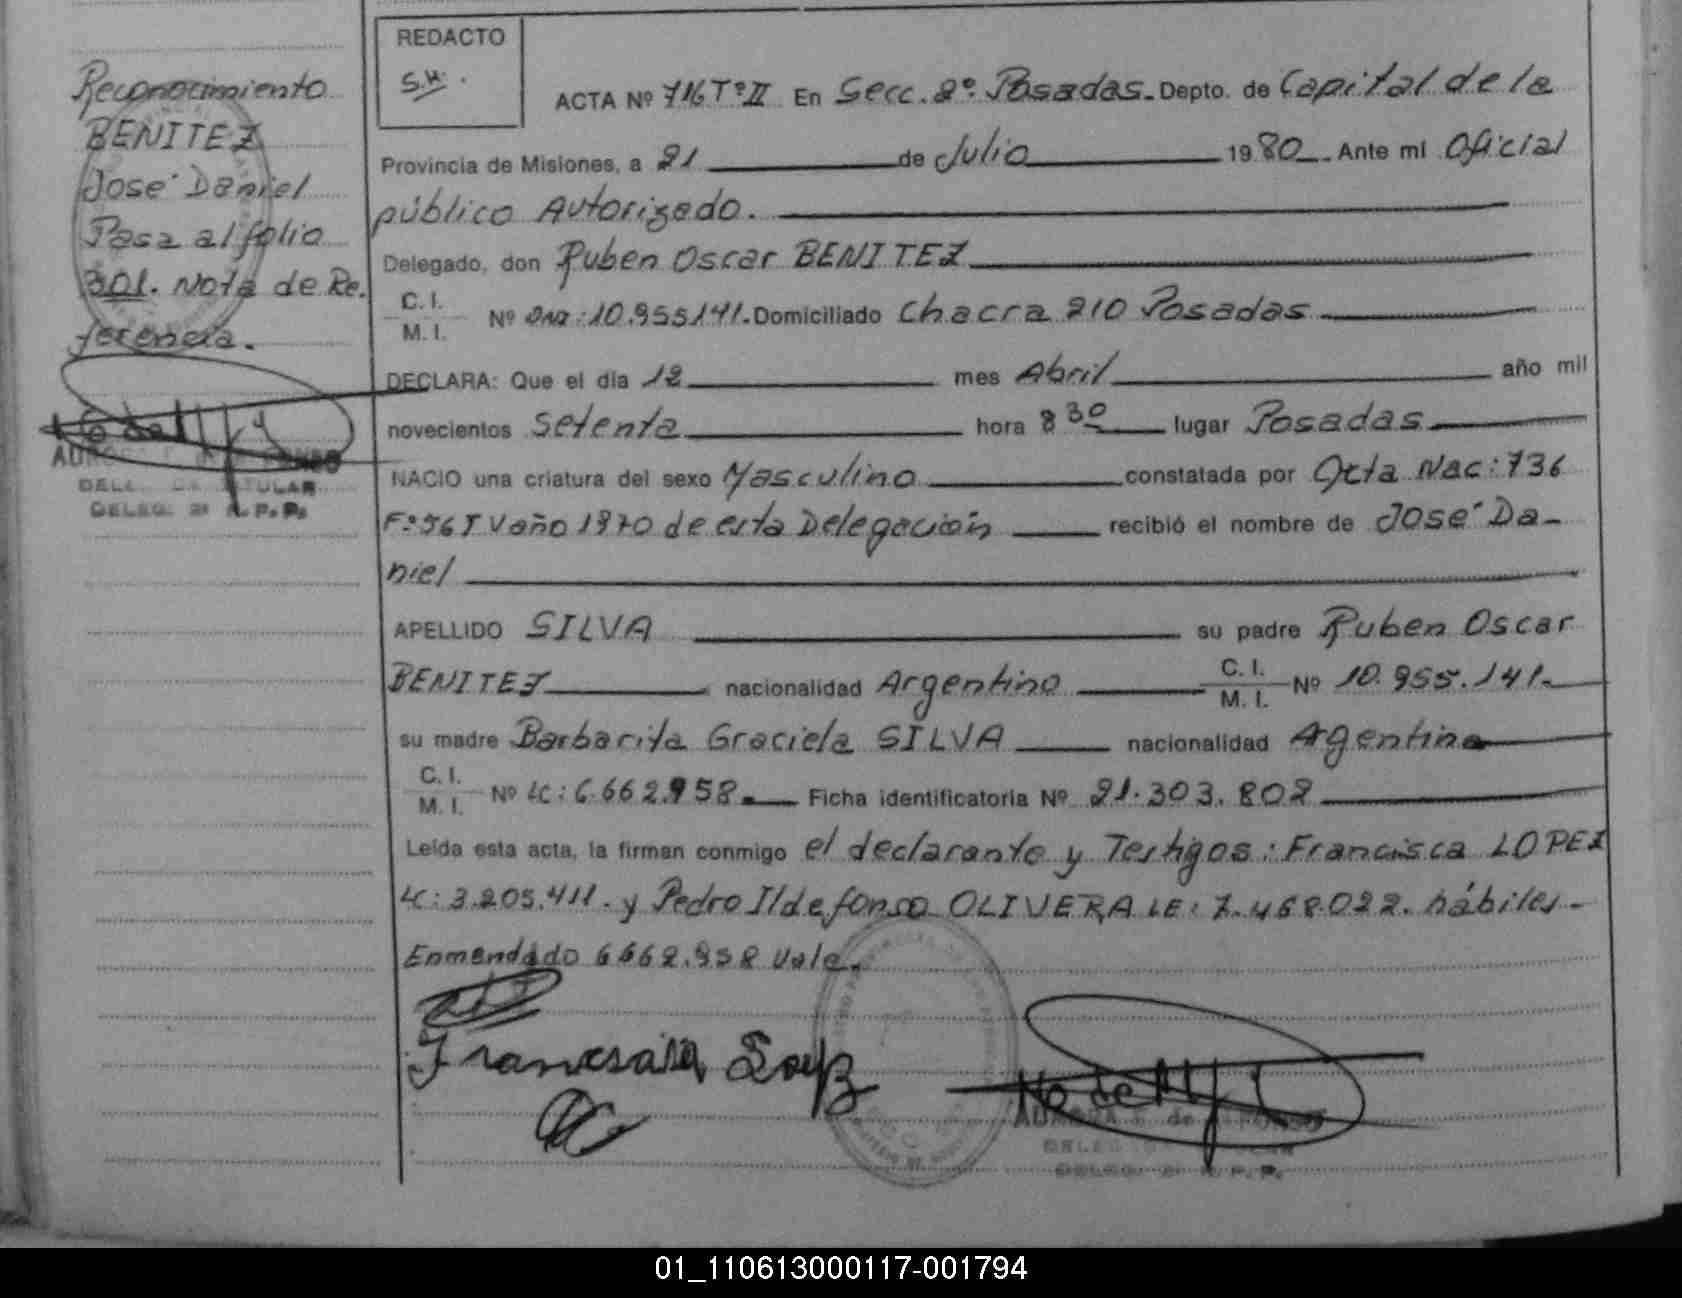 Reconocimiento
BENITEZ
José Daniel
Pasa al folio
301. Nota de Re.
ferencia.
DELEG. 2ª R.P.P.
REDACTO
S.H.
ACTA Nº 716 Tº II En Secc. 2º. Posadas. Depto. de Capital de la
Provincia de Misiones, a 21 de Julio 1980. Ante mi Oficial
público Autorizado.
Delegado, don Ruben Oscar BENITEZ
C. I.
M. I. Nº DNI: 10.955141. Domiciliado Chacra 210 Posadas
DECLARA: Que el día 12 mes Abril año mil
novecientos Setenta hora 8 30 lugar Posadas
NACIO una criatura del sexo Masculino constatada por Acta Nac: 736
Fº 56 T V año 1970 de esta Delegación recibió el nombre de José Da-
niel
APELLIDO SILVA su padre Ruben Oscar
BENITEZ nacionalidad Argentino C. I. M. I. Nº 10.955.141.
su madre Barbarita Graciela SILVA nacionalidad Argentina
C. I.
M. I. Nº LC: 6.662.958. Ficha identificatoria Nº 21.303.802
Leída esta acta, la firman conmigo el declarante y Testigos: Francisca LOPEZ
LC: 3.205.411. y Pedro Ildefonso OLIVERA LE: 7.468.022. hábiles.-
Enmendado 6662.958 Vale.
01_110613000117-001794